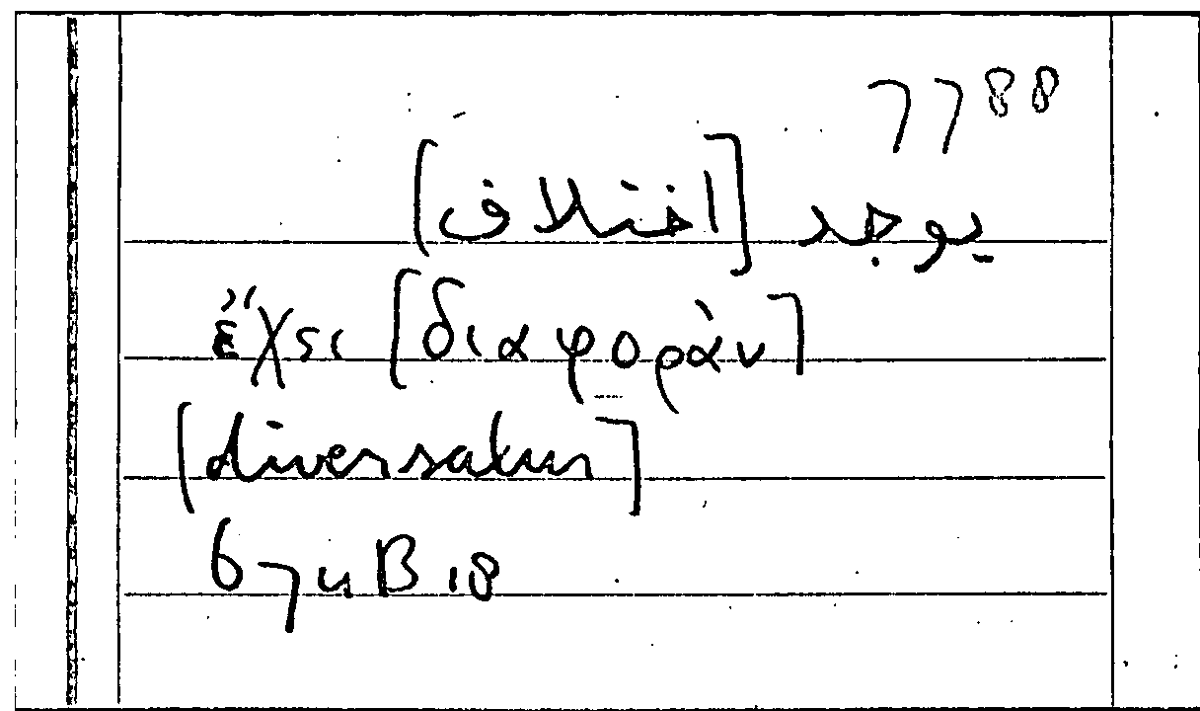 7788
يوجد [اختلاف]
ἔχει [διαφορὰν]
[diversatur]
674B18